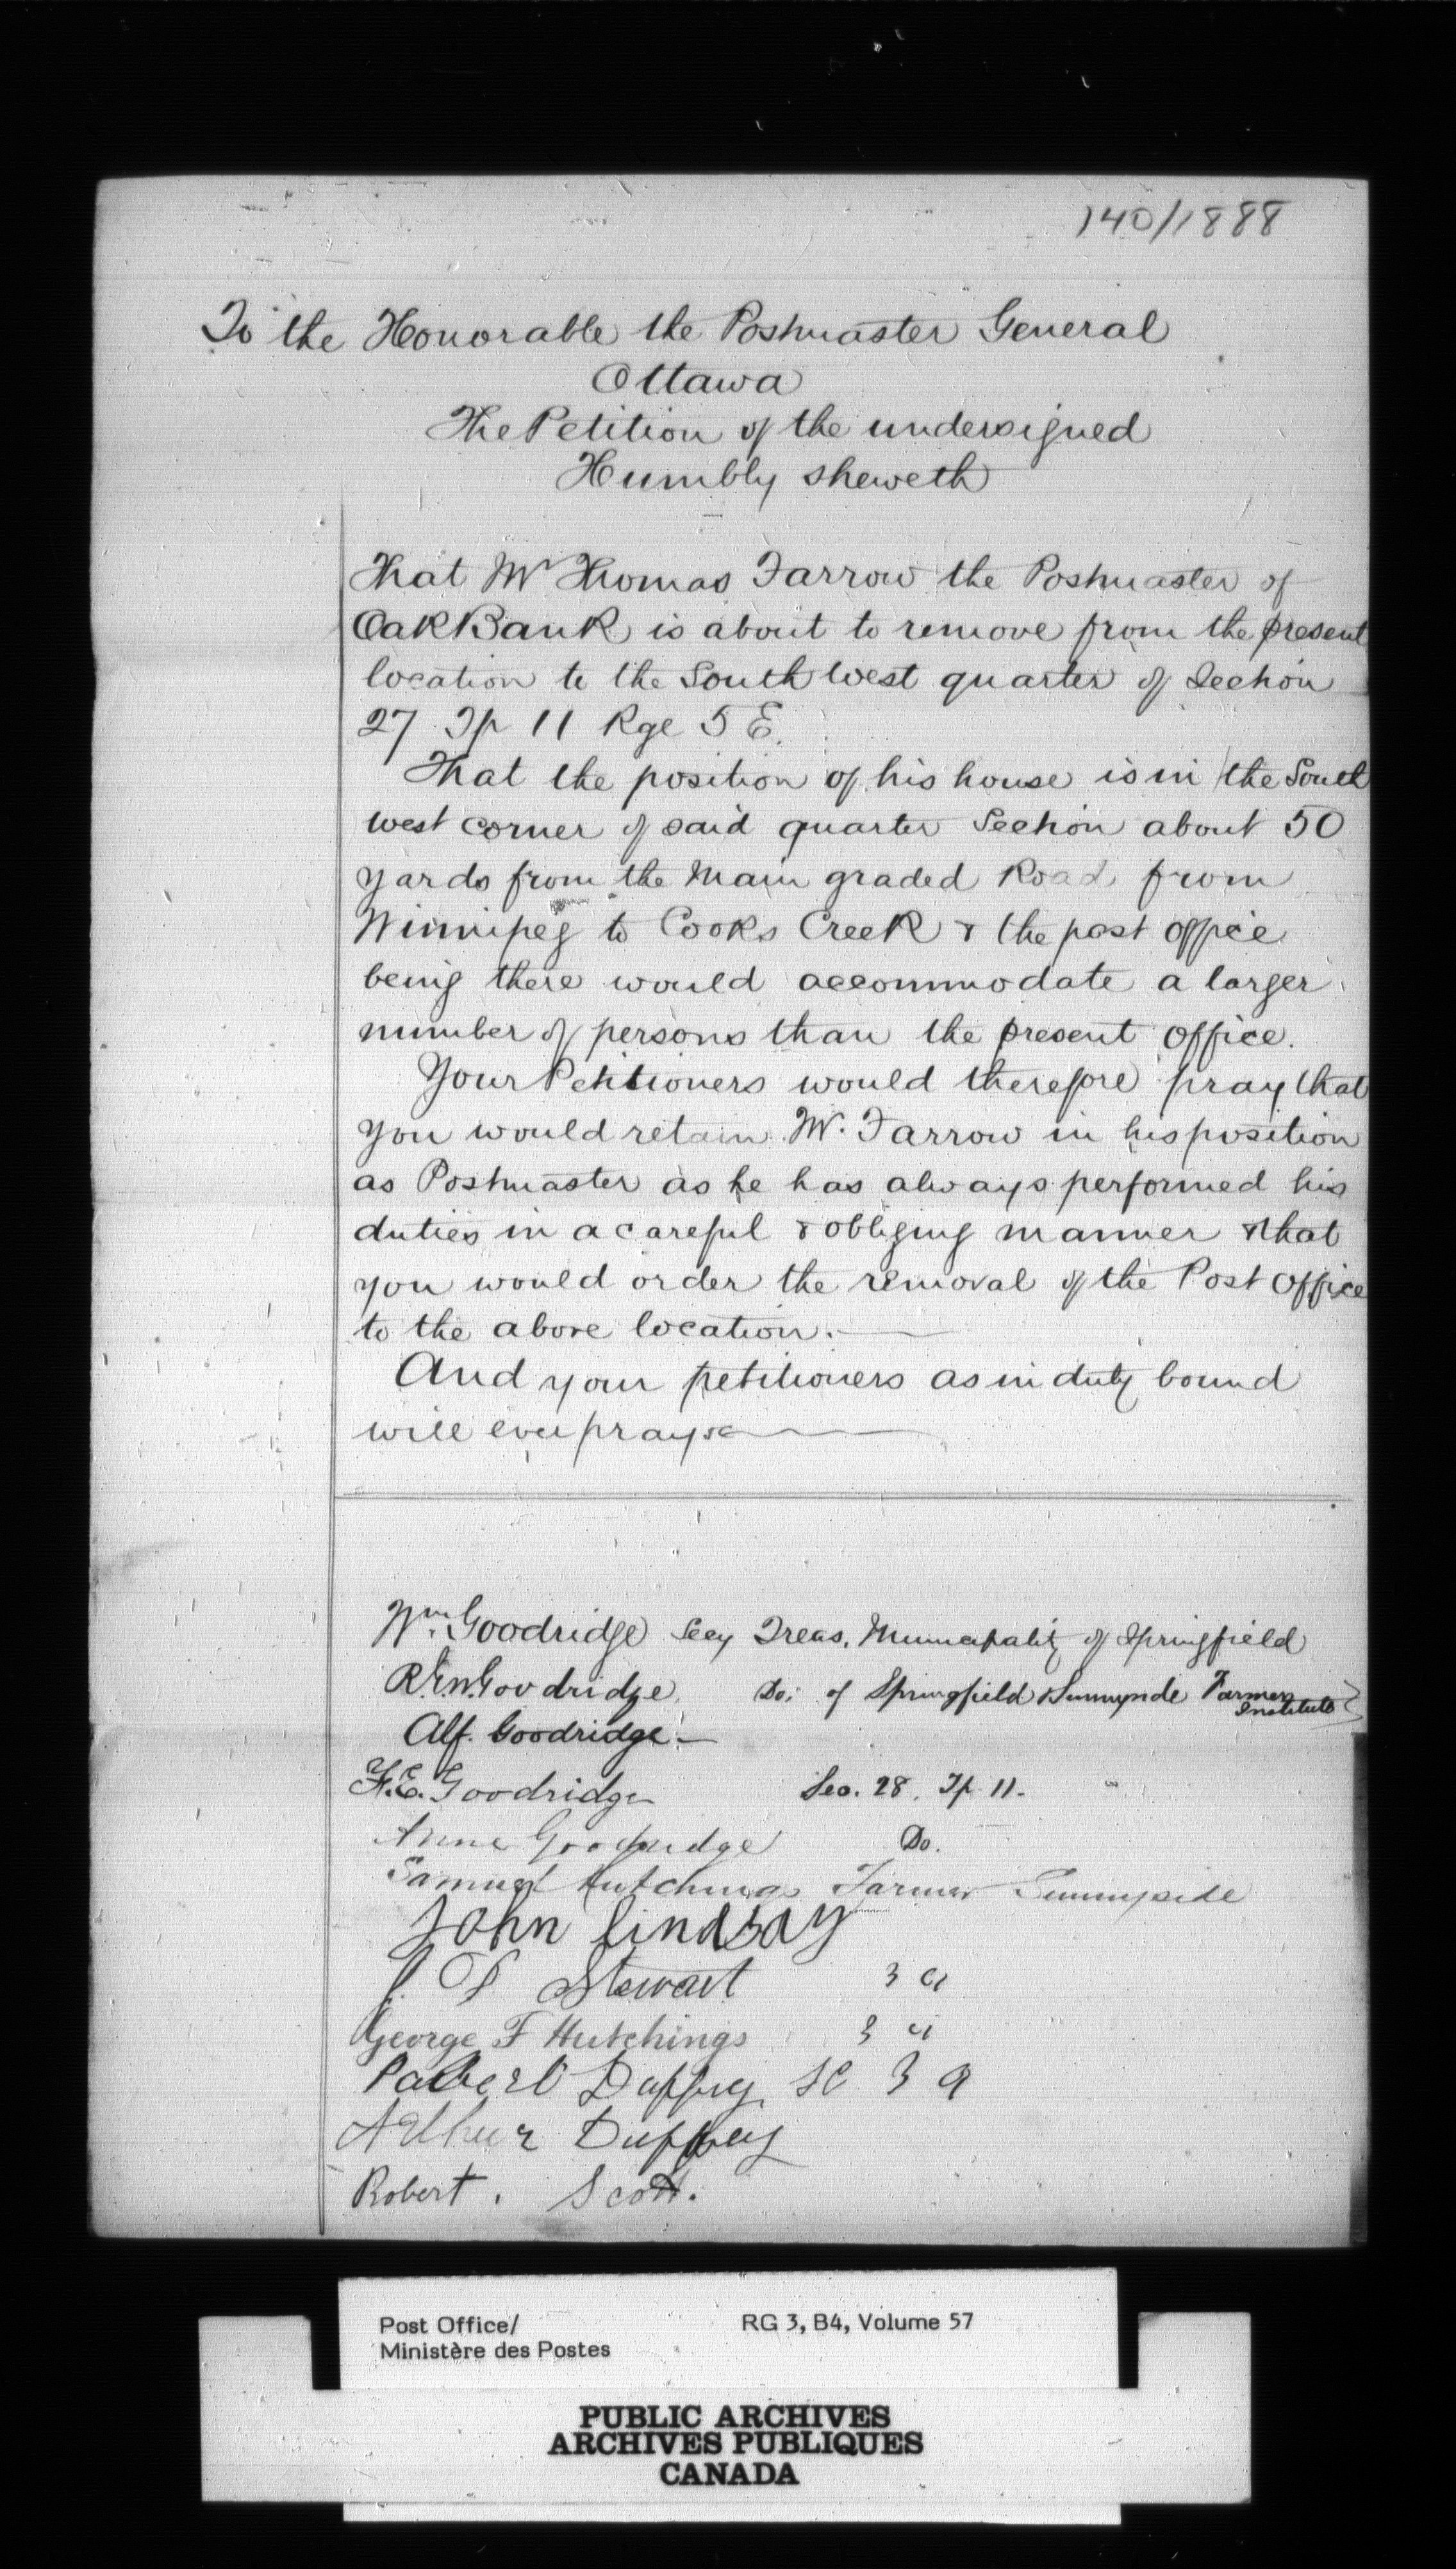 140/1888
To the Honorable the Postmaster General
Ottawa
The Petition of the undersigned
Humbly sheweth
That Mr Thomas Farrow the Postmaster of
Oak Bank is about to remove from the present
location to the South West quarter of Section
27 Tp 11 Rge 5 E.
That the position of his house is in the South
west corner of said quarter Section about 50
yards from the Main graded Road from
Winnipeg to Cooks Creek & the post office
being there would accommodate a larger
number of persons than the present office.
Your Petitioners would therefore pray that
you would retain Mr. Farrow in his position
as Postmaster as he has always performed his
duties in a careful & obliging manner & that
you would order the removal of the Post Office
to the above location.
And your petitioners as in duty bound
will ever pray &c
Wm. Goodridge Secy Treas. Municipality of Springfield
R.E.W. Goodridge Do. of Springfield & Sunnyside Farmers Institute
Alf. Goodridge
F.E. Goodridge Sec. 28. Tp 11.
Anne Goodridge Do.
Samuel Hutchings Farmer Sunnyside
John Lindsay
Stewart
George F Hutchings
Duffey
Arthur Duffey
Robert. Scott.
Post Office/ RG 3, B4, Volume 57
Ministère des Postes
PUBLIC ARCHIVES
ARCHIVES PUBLIQUES
CANADA